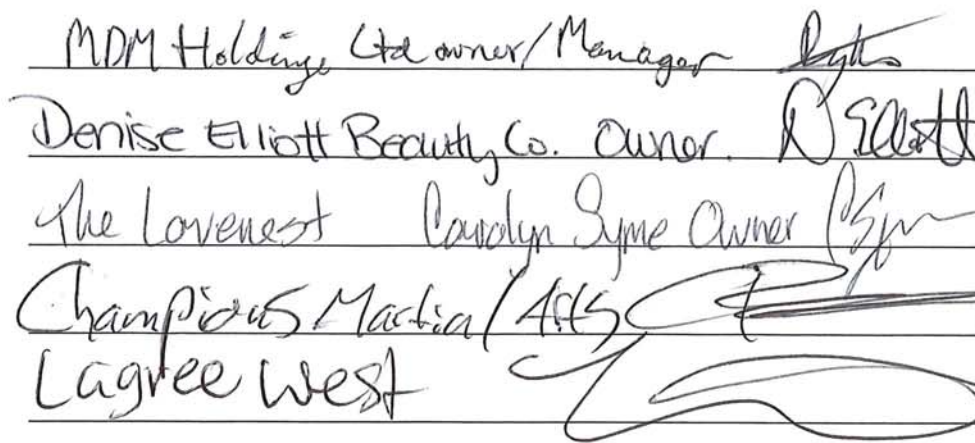 MDM Holdings Ltd owner/Manager
Denise Elliott Beauty Co. Owner. D Elliott
The Lovenest Carolyn Syme Owner C Sym
Champions Martial Arts
Lagree West